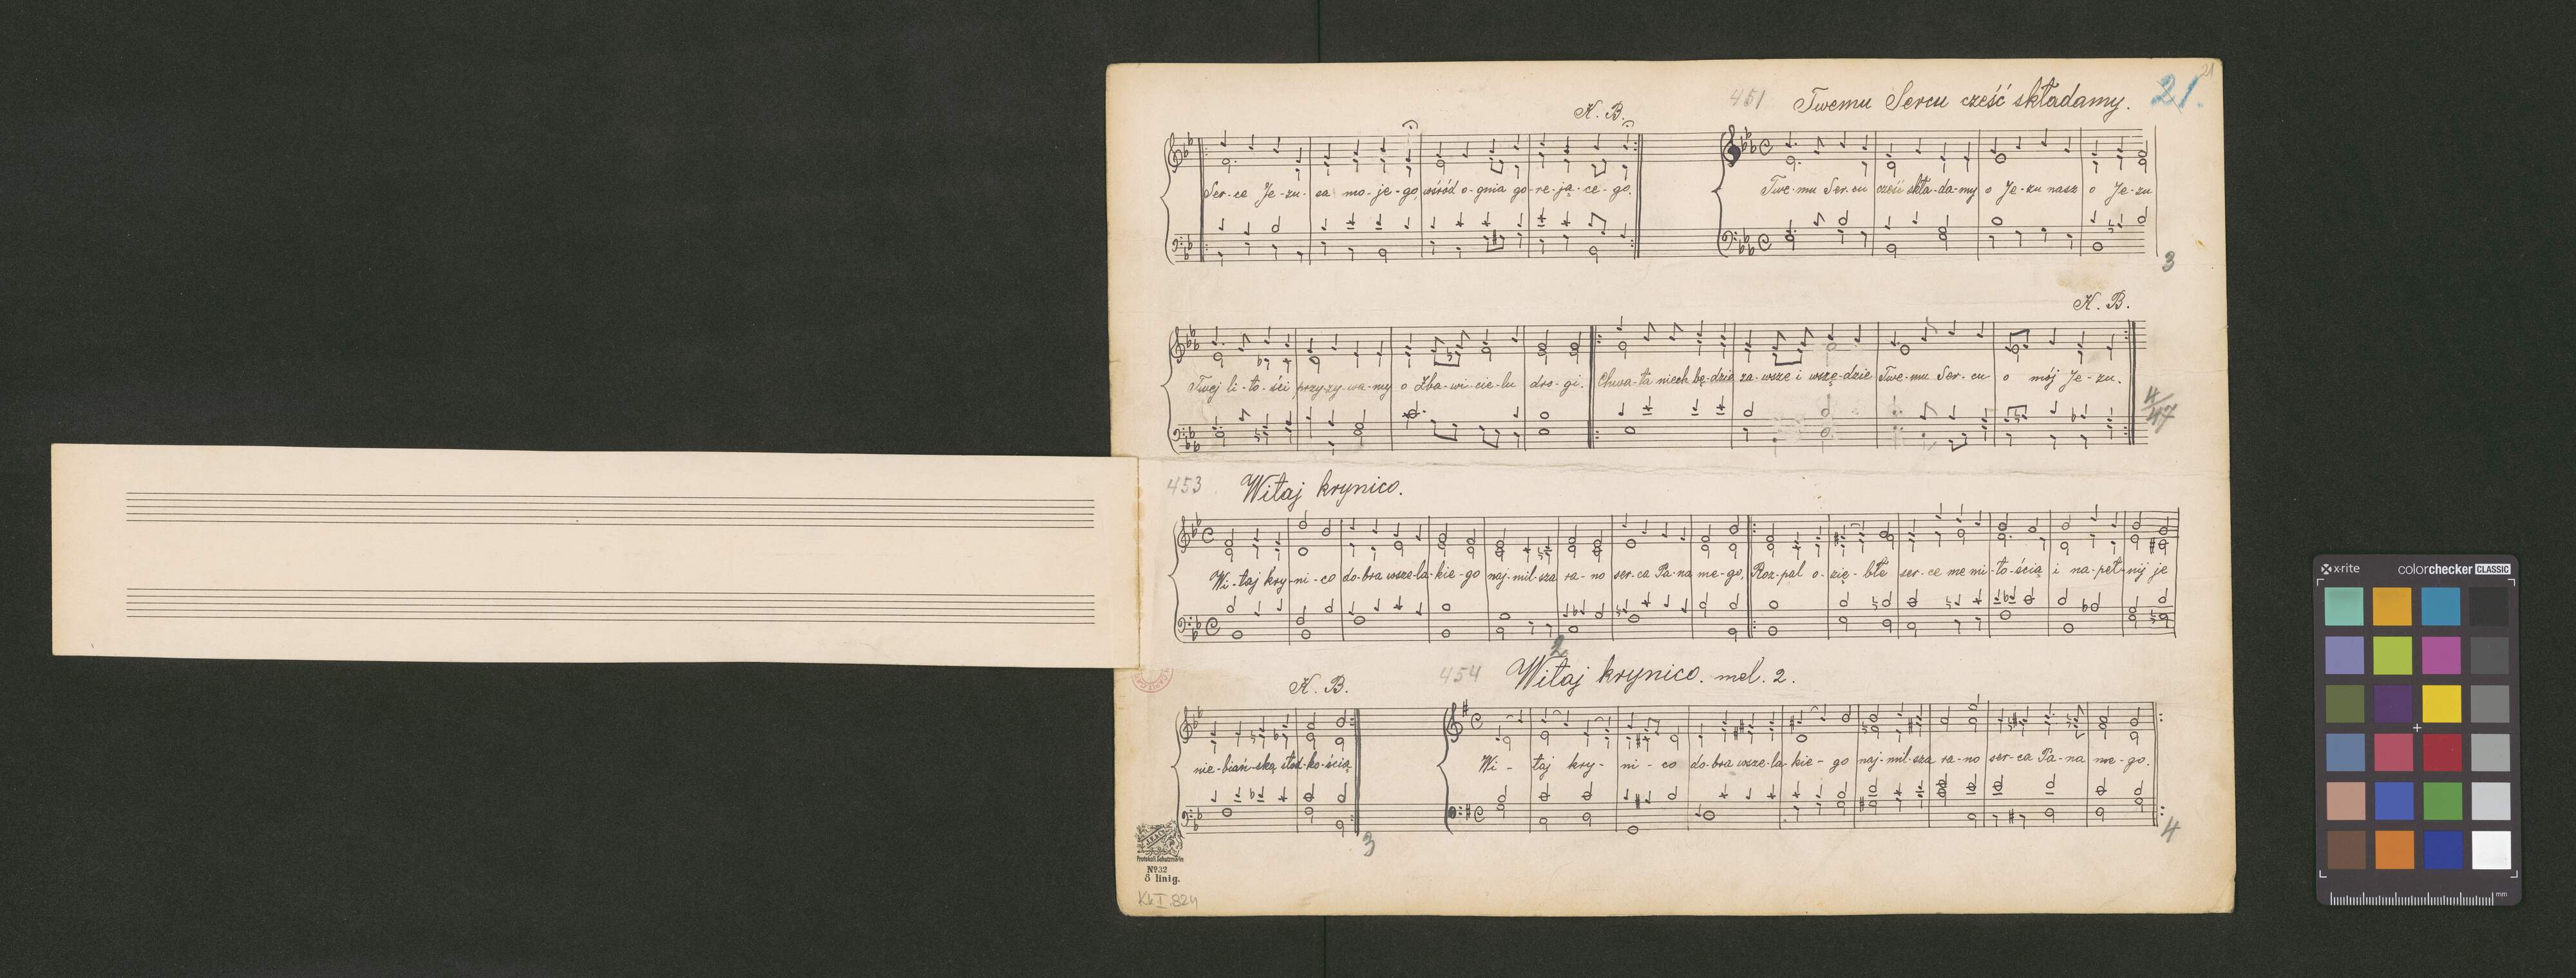 21
451 Twemu Sercu cześć składamy. 21.
K. B.
Ser-ce Je-zu-sa mo-je-go, wśród o-gnia go-re-ją-ce-go.
Twe-mu Ser-cu cześć skła-da-my o Je-zu nasz o Je-zu
3
K. B.
Twej li-to-ści przyzy-wa-my o Zba-wi-cie-lu dro-gi. Chwa-ła niech bę-dzie za-wsze i wszę-dzie Twe-mu Ser-cu o mój Je-zu.
4/47
453 Witaj krynico.
Wi-taj kry-ni-co do-bra wsze-la-kie-go naj-mil-sza ra-no ser-ca Pa-na me-go, Roz-pal o-zię-błe ser-ce me mi-ło-ścią i na-peł-nij je
2
454 Witaj krynico. mel. 2.
K. B.
nie-biań-ską słod-ko-ścią
Wi-taj kry-ni-co do-bra wsze-la-kie-go naj-mil-sza ra-no ser-ca Pa-na me-go.
3
4
Protokoll Schutzmarke
No 32
8 linig.
KkI 824
x-rite colorchecker CLASSIC
mm